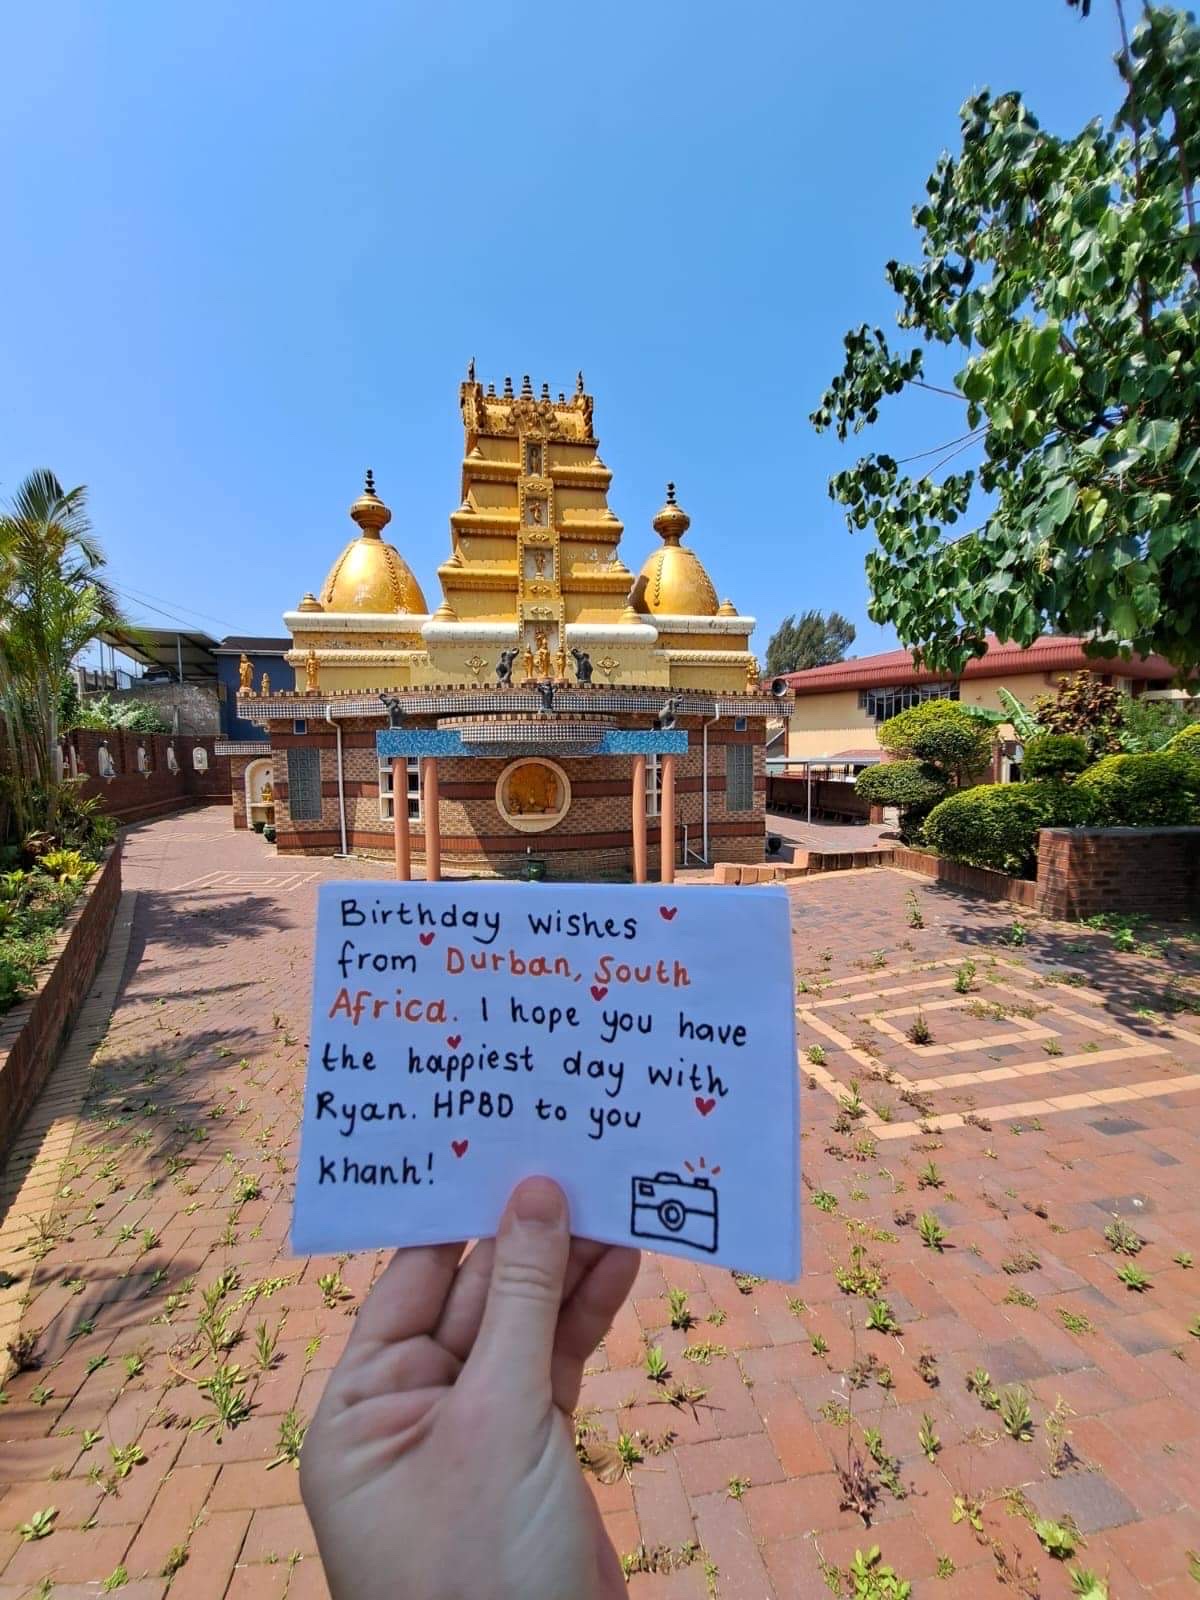 Birthday wishes
from Durban, South
Africa. I hope you have
the happiest day with
Ryan. HPBD to you
khanh!